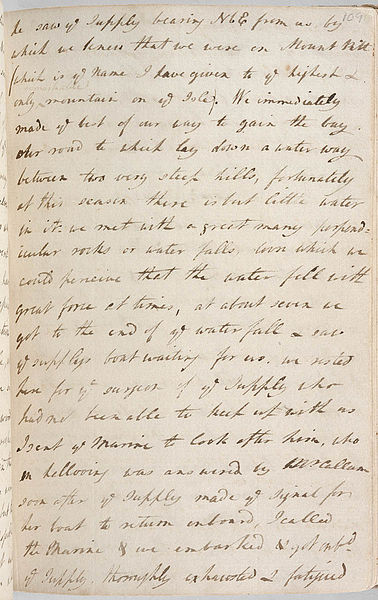 109
he saw ye Supply bearing NbE from us by
which we knew that we were on Mount Pitt
(which is ye Name I have given to ye highest &
only mountain on ye Isle). We immediately
made ye best of our way to gain the bay.
our road to which lay down a water way
between two very steep hills, fortunately
at this season there is but little water
in it. we met with a great many perpend=
icular rocks or water falls, down which we
could perceive that the water fell with
great force at times, at about seven we
got to the end of ye water fall & saw
ye supplys boat waiting for us. we rested
here for ye surgeon of ye Supply who
had not been able to keep up with us
I sent ye Marine to look after him, who
on hollowing was answered by
soon after ye Supply made ye signal for
her boat to return onboard, I called
the Marine & we embarked & got onbd
ye Supply. thoroughly exhausted & fatigued